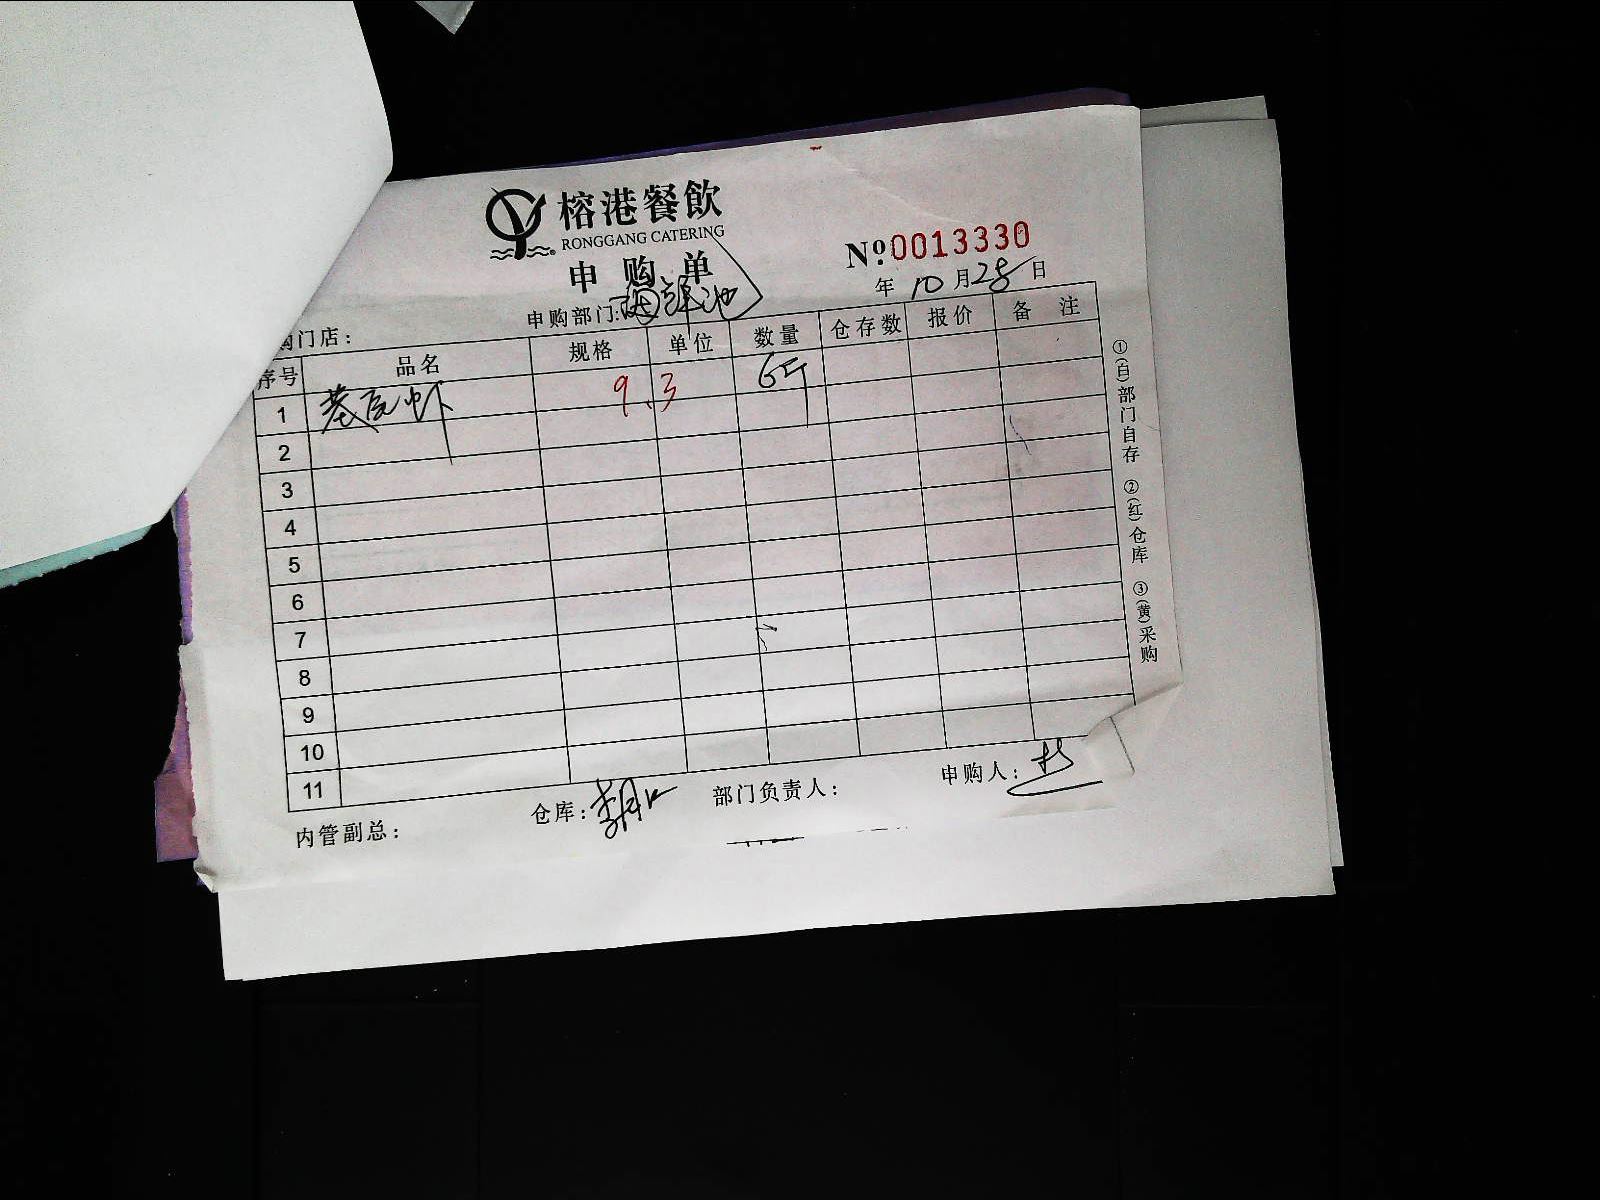 榕港餐飲
RONGGANG CATERING
申购单
№ 0013330
年 10 月 28 日
购门店： 申购部门: 海鲜池
序号 品名 规格 单位 数量 仓存数 报价 备注
1 基尾虾 9.3 6斤
2
3
4
5
6
7
8
9
10
11
内管副总： 仓库: 部门负责人： 申购人：
①(白)部门自存 ②(红)仓库 ③(黄)采购